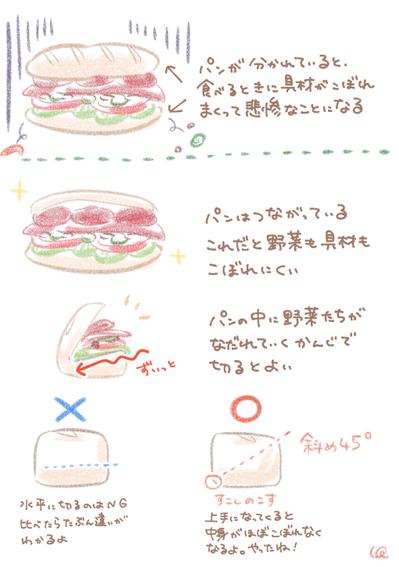 パンが分かれていると、
食べるときに具材がこぼれ
まくって悲惨なことになる
パンはつながっている
これだと野菜も具材も
こぼれにくい
パンの中に野菜たちが
なだれていくかんじで
切るとよい
ずいっと
斜め45°
水平に切るのはNG
比べたらたぶん違いが
わかるよ
すこしのこす
上手になってくると
中身がほぼこぼれなく
なるよ。やったね!